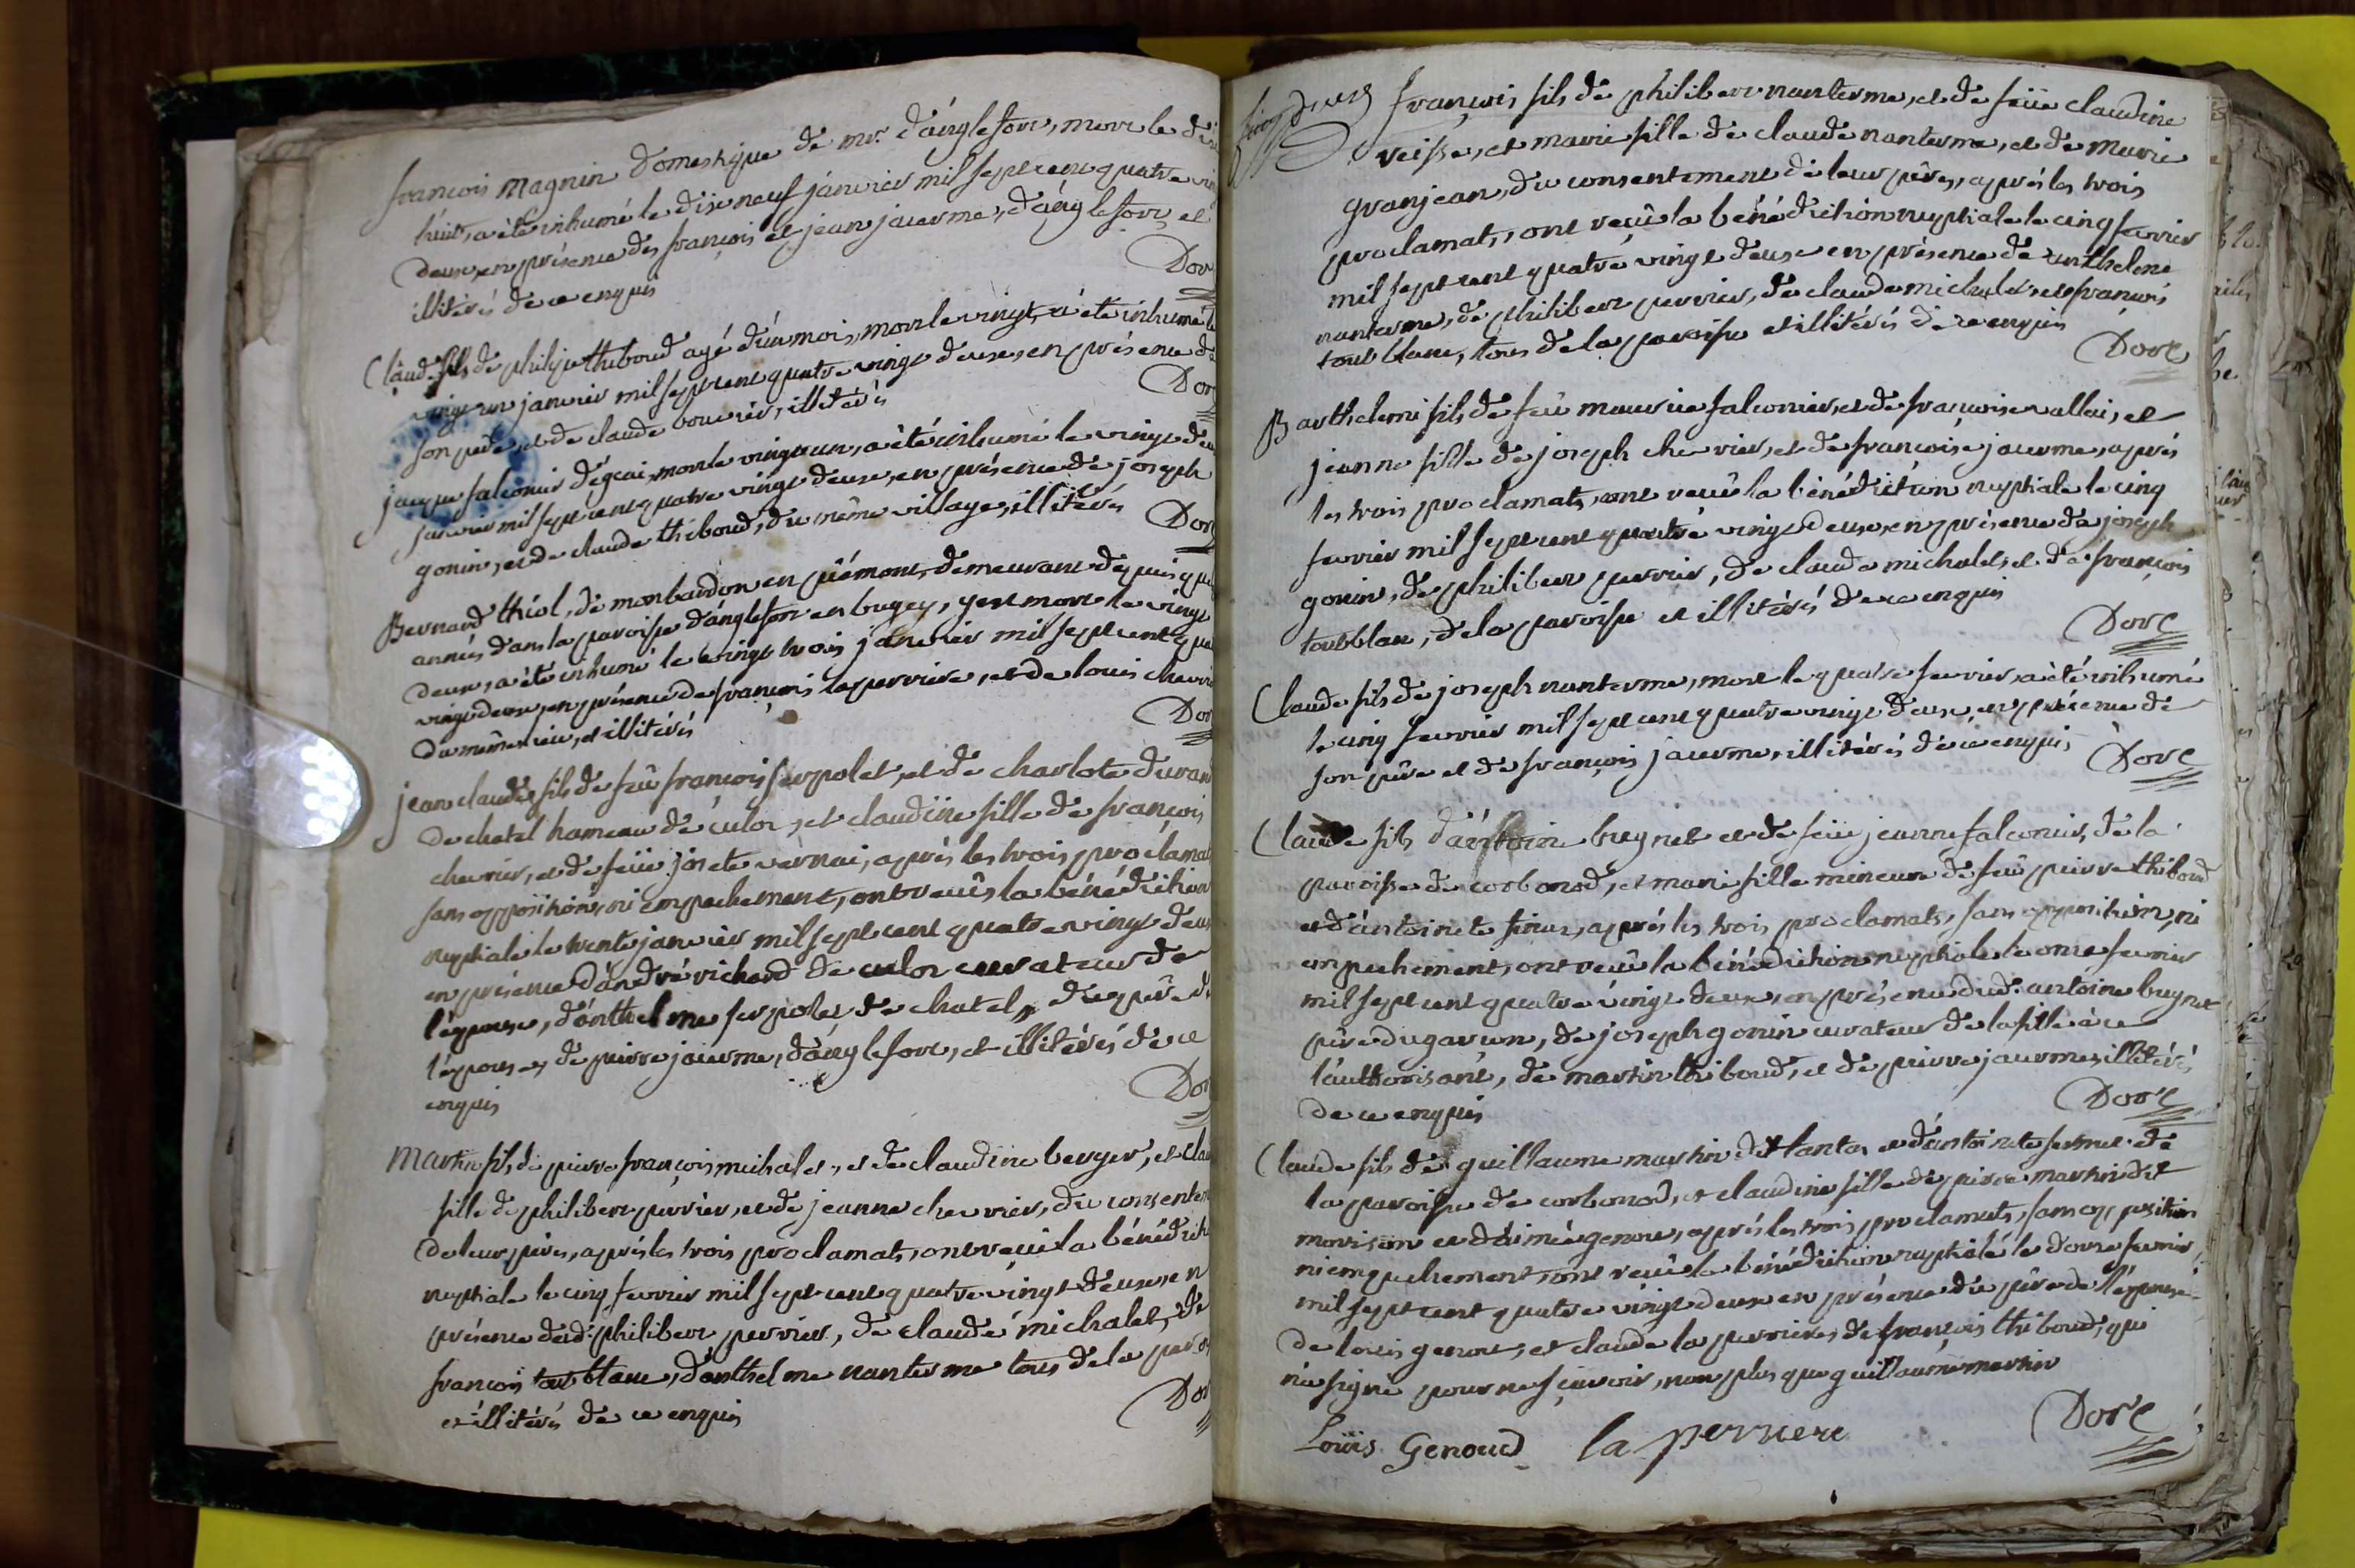 françois magnin domestique de mr. d'anglefort, mort le di
huit, a été inhumé le dix neuf janvier mil sept cent quatre vin
deux, en présence des françois et jean jacerme, d'anglefort, et
illitérés de ce enquis
Dor
Claude fils de philipe thiboud agé d'un mois, mort le vingt, a été inhumé le
vingt un janvier mil sept cent quatre vingt deux, en présence de
son pere, et de claude bouvier, illitérés
Dor
jacque falconier mort le vingt un, a été inhumé le vingt deu
janvier mil sept cent quatre vingt deux, en présence de joseph
gonin, et de claude thiboud, du même village, illitérés
Dor
Bernard thiol, de monbardon en piémont, demeurant depuis que
années dans la paroisse d'anglefort en bugey, y est mort le vingt
deux, a été inhumé le vingt trois janvier mil sept cent qua
vingt deux, en présence de françois laperriere, et de louis chevrie
du même lieu, et illitérés
Dor
jean claude fils de feû françois serpolet, et de charlote duran
de chatel hameau de culoz, et claudine fille de françois
chevrier, et de feüe josete vernai, après les trois proclamat
sans opposition, ni empechement, ont reçûs la bénédiction
nuptiale le trente janvier mil sept cent quatre vingt deux
en présence d'andré richard de culoz curateur de
l'epouse, d'anthelme serpolet de chatel,
l'épouse, de pierre jacerme, d'anglefort, et illitérés de ce
enquis
Dor
Martin fils de pierre françois michalet, et de claudine berger, et clau
fille de philibert perrier, et de jeanne chevrier, du consentem
de leur péres, après les trois proclamats, ont reçu la bénédicti
nuptiale le cinq fevrier mil sept cent quatre vingt deux, en
présence dud. philibert perrier, de claude michalet, de
françois toutblanc, d'anthelme nanterme tous de la paroi
et illitérés de ce enquis
Dor
françois fils de philibert nanterme, et de feüe claudine
veisse, et marie fille de claude nanterme, et de marie
granjean, du consentement de leur péres, après les trois
proclamats, ont reçû la bénédiction nuptiale le cinq fevrier
mil sept cent quatre vingt deux en présence de anthelme
nanterme, de philibert perrier, de claude michalet, et françois
toutblanc, tous de la paroisse et illitérés de ce enquis
Dorc
Barthelemi fils de feû maurice falconier, et de françoise vallai, et
jeanne fille de joseph chevrier, et de françoise jacerme, après
les trois proclamats, ont reçû la bénédiction nuptiale le cinq
fevrier mil sept cent quatre vingt deux, en présence de joseph
gonin, de philibert perrier, de claude michalet, et de françois
toutblanc, de la paroisse et illitérés de ce enquis
Dorc
Claude fils de joseph nanterme, mort le quatre fevrier, a été inhumé
le cinq fevrier mil sept cent quatre vingt deux, en présence de
son père et de françois jacerme, illitérés de ce enquis
Dorc
Claude fils d'antoine bugnet et de feüe jeanne falconier, de la
paroisse de corbonod, et marie fille mineure de feû pierre thiboud
et d'antoinete après les trois proclamats, sans opposition, ni
empechement, ont reçû la bénédiction nuptiale le onze fevrier
mil sept cent quatre vingt deux, en présence dud. antoine bugnet
père du garçon, de joseph gonin curateur de la fille à ce
l'authorisant, de martin thiboud, et de pierre jacerme, illitérés
de ce enquis
Dorc
Claude fils de guillaume martin dit et d'antoinete de
la paroisse de corbonod, et claudine fille de pierre martin dit
morison et d'aimée genout, après les trois proclamats, sans opposition
ni empechement, ont reçû la bénédiction nuptiale le douze fevrier
mil sept cent quatre vingt deux en présence du père de l'epouse
de louis genout, et claude la perriere, de françois thiboud, qui
n'a signé pour ne sçavoir, non plus que guillaume martin
Loüis Genoud la perriere Dorc